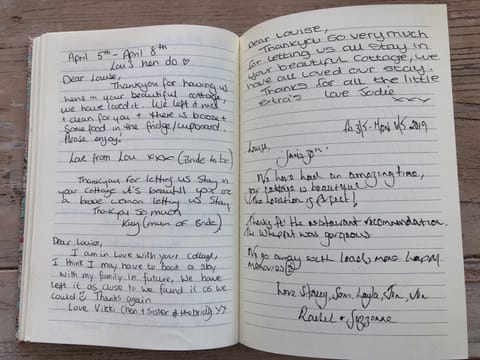 April 5th - April 8th
Lou's hen do ♡
Dear Louise,
Thankyou for having us
hens in your beautiful cottage,
we have loved it. We left it neat
+ clean for you + there is booze +
Some food in the fridge/cupboard.
Please enjoy!
Love from Lou xxxx (Bride to be)
Thankyou for letting us Stay in
your cottage it's beautifll you are
a brave woman letting us Stay
Thankyou so much
Kay (mum of Bride)
Dear Louise,
I am in love with your cottage,
I think I may have to book a stay
with my family in future, We have
left it as close to we found it as we
could ☺ Thanks again
Love Vikki (hen + Sister of the bride) xx
Dear Louise,
Thankyou So very much
for letting us all stay in
your beautiful Cottage, we
have all loved our stay.
Thanks for all the little
extra's Love Jodie
xxx
3/5 - Mon 6/5 2019
Louise,
We have had an amazing time,
your cottage is beautiful
The location is perfect!
Thanks for the restaurant recommendation.
The Wheppet was gorgeous
We go away with loads more happy
memories ☺
Love Stacey, Sam, Layla, Jen,
Rachel + Suzzanne